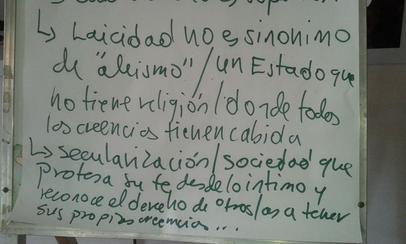 ↳ Laicidad no es sinonimo
de "ateismo" / un Estado que
no tiene religión / donde todas
las creencias tienen cabida
↳ Secularización / Sociedad que
profesa su fe desde lo íntimo y
reconoce el derecho de otros/as a tener
sus propias creencias...